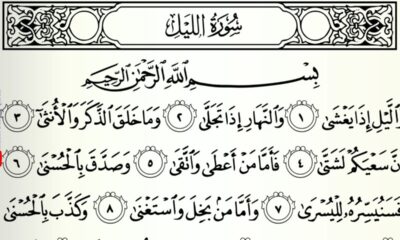 سُورَةُ اللَّيْلِ
بِسْمِ اللَّهِ الرَّحْمَٰنِ الرَّحِيمِ
وَاللَّيْلِ إِذَا يَغْشَىٰ ١ وَالنَّهَارِ إِذَا تَجَلَّىٰ ٢ وَمَا خَلَقَ الذَّكَرَ وَالْأُنثَىٰ ٣
نَّ سَعْيَكُمْ لَشَتَّىٰ ٤ فَأَمَّا مَنْ أَعْطَىٰ وَاتَّقَىٰ ٥ وَصَدَّقَ بِالْحُسْنَىٰ ٦
فَسَنُيَسِّرُهُ لِلْيُسْرَىٰ ٧ وَأَمَّا مَن بَخِلَ وَاسْتَغْنَىٰ ٨ وَكَذَّبَ بِالْحُسْنَىٰ